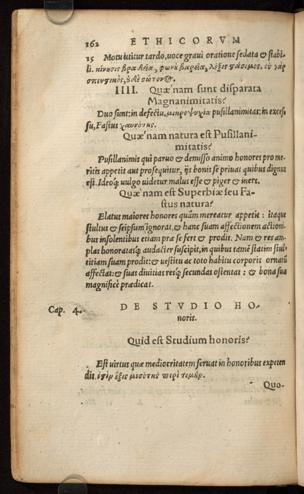 162 ETHICORVM
15 Motu utitur tardo, uoce graui oratione sedata & stabi-
li. κίνησις βραδεῖα, φωνὴ βαρεῖα, λέξις στάσιμος. οὐ γὰρ
σπευστικὸς,
IIII. Quæ'nam sunt disparata
Magnanimitatis?
Duo sunt: in defectu, μικροψυχία pusillanimitas: in exces-
su, Fastus χαυνότης.
Quæ'nam natura est Pusillani-
mitatis?
Pusillanimis qui paruo & demisso animo honores pro me-
ritis appetit aut prosequitur, ijs bonis se priuat quibus dignus
est. Ideoq́; uulgo uidetur malus esse & piger & iners.
Quæ'nam est Superbiæ seu Fa-
stus natura?
Elatus maiores honores quàm mereatur appetit: itaque
stultus & seipsum ignorat, & hanc suam affectionem actioni-
bus insolentibus etiam præ se fert & prodit. Nam & res am-
plas honoratasq́; audacter suscipit, in quibus temè statim stul-
titiam suam prodit: & uestitu ac toto habitu corporis ornatū
affectat: & suas diuitias resq́; secundas ostentat: & bona sua
magnificè prædicat.
Cap. 4. DE STVDIO HO-
noris.
Quid est Studium honoris?
Est uirtus quæ mediocritatem seruat in honoribus expeten
dis. ἕξις μεσότης περὶ τιμὴν.
Quo-